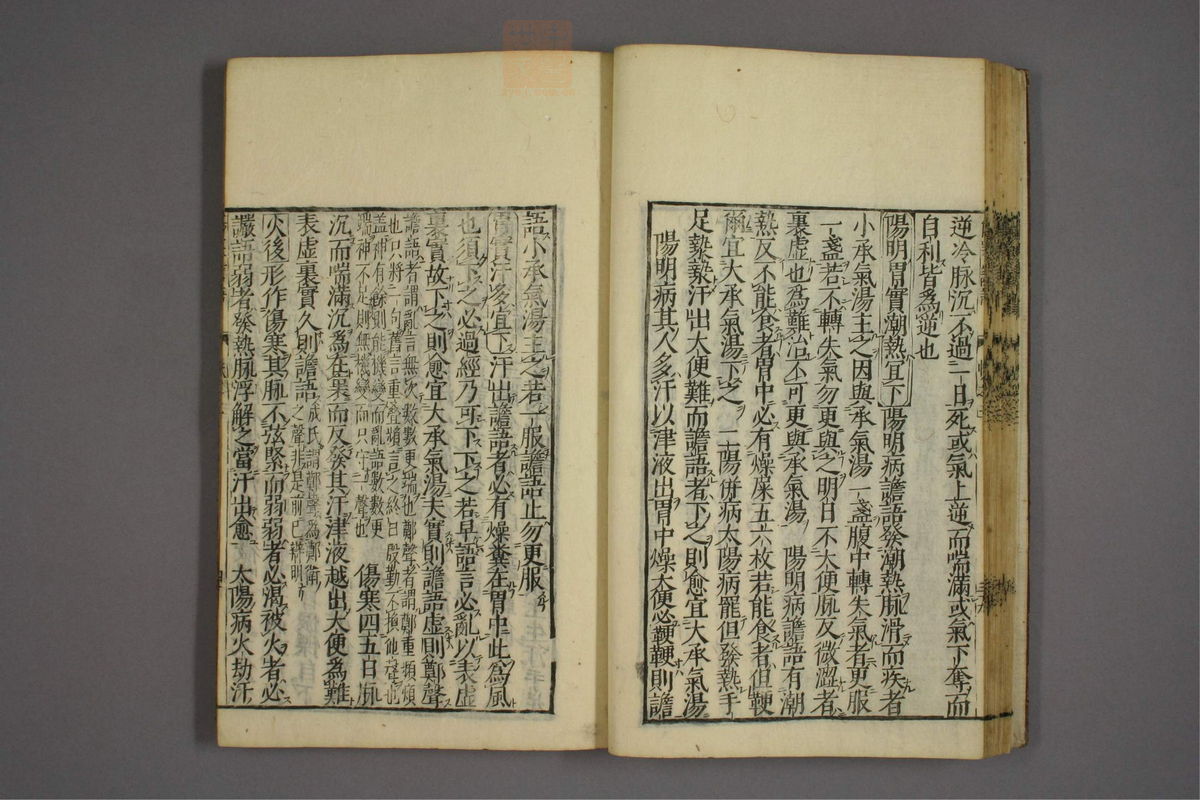 逆冷脉沉不過一日死或氣上逆而喘滿或氣下奪而
自利皆爲逆也
陽明胃實潮熱宜下陽明病譫語發潮熱脉滑而疾者
小承氣湯主之因與承氣湯一盞腹中轉失氣者更服
一盞若不轉失氣勿更與之明日不大便脉反微澀者
裏虛也爲難治不可更與承氣湯 陽明病譫語有潮
熱反不能食者胃中必有燥屎五六枚若能食者但鞕
爾宜大承氣湯下之 二陽併病太陽病罷但發熱手
足漐漐汗出大便難而譫語者下之則愈宜大承氣湯
陽明病其人多汗以津液出胃中燥大便必鞕鞕則譫
語小承氣湯主之若一服譫語止勿更服
胃實汗多宜下汗出譫語者必有燥糞在胃中此爲風
也須下之必過經乃可下下之若早語言必亂以表虛
裏實故下之則愈宜大承氣湯夫實則譫語虛則鄭聲
譫語者謂亂言無次數數更端也鄭聲者謂鄭重頻煩
也只將一句舊言重疊頻言之終日殷勤不換他聲也
盖神有餘則能機變而亂語數數更
端神不足則無機變而只守一聲也 傷寒四五日脉
沉而喘滿沉爲在裏而反發其汗津液越出大便爲難
表虛裏實久則譫語成氏謂鄭聲爲鄭衛
之聲非是前已辨明
火後形作傷寒其脉不弦緊而弱弱者必渴被火者必
讝語弱者發熱脉浮解之當汗出愈 太陽病火劫汗